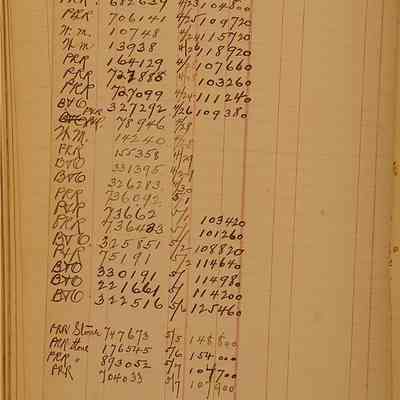 PRR. 682639 4/23 104800
PRR 706141 4/25 109720
W.M. 10748 4/24 115720
W.M 13938 4/24 118920
PRR 164129 107660
PRR 727885 103260
PRR 727099 4/24 111240
B&O 327292 4/26 109380
PRR. 78946 4/28
W.M. 14240 4/28
PRR 155358 4/29
B&O 331395 4/28
B&O 326283 4/30
PRR 736092 5/1
PRR 73662 5/1 103420
PRR 5/1 101260
B&O. 325851 5/2 108820
PRR 75191 5/2 114640
B&O 330191 5/1 114980
B&O 221661 5/1 114200
B&O 322516 5/6 125460
PRR Stone 747673 5/5 148800
PRR Stone 176545 5/6 154000
PRR " 893052 5/7 104700
PRR 704033 5/7 107900